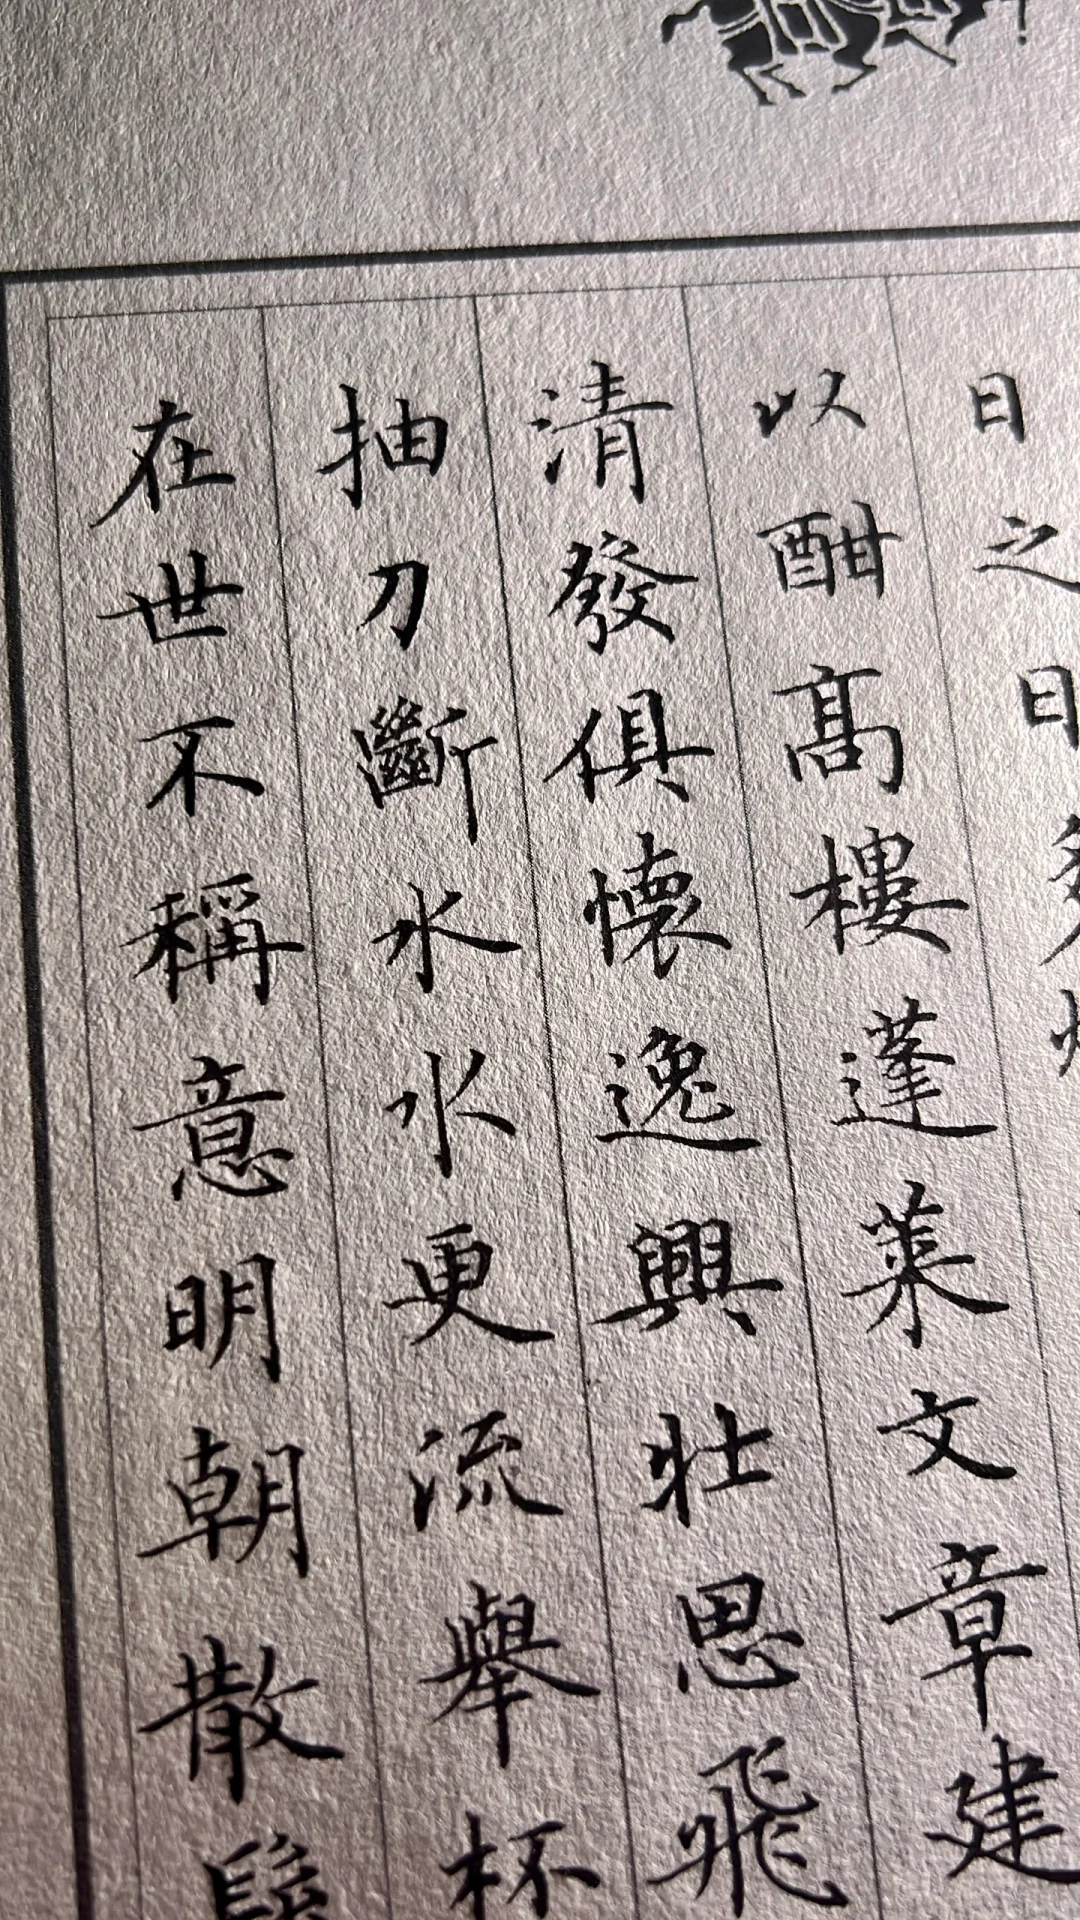 日之日多煩
以酣高樓蓬萊文章建
清發俱懷逸興壯思飛
抽刀斷水水更流舉杯
在世不稱意明朝散髮